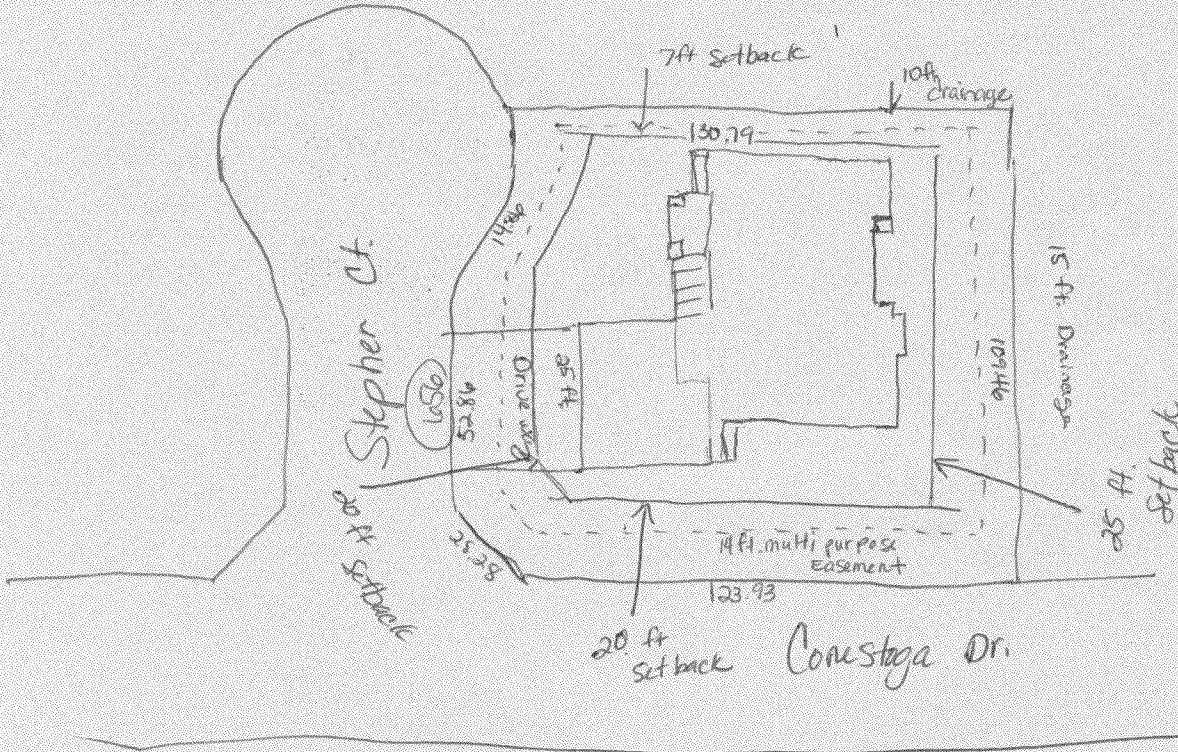 7ft Setback
10ft
drainage
130.79
14.86
Stepher Ct.
52.86
Drive way
25 ft.
109.46
15 ft. Drainage
25 ft.
Setback
20 ft
Setback
25.28
14ft. multi purpose
Easement
123.93
20 ft
Setback
Conestoga Dr.